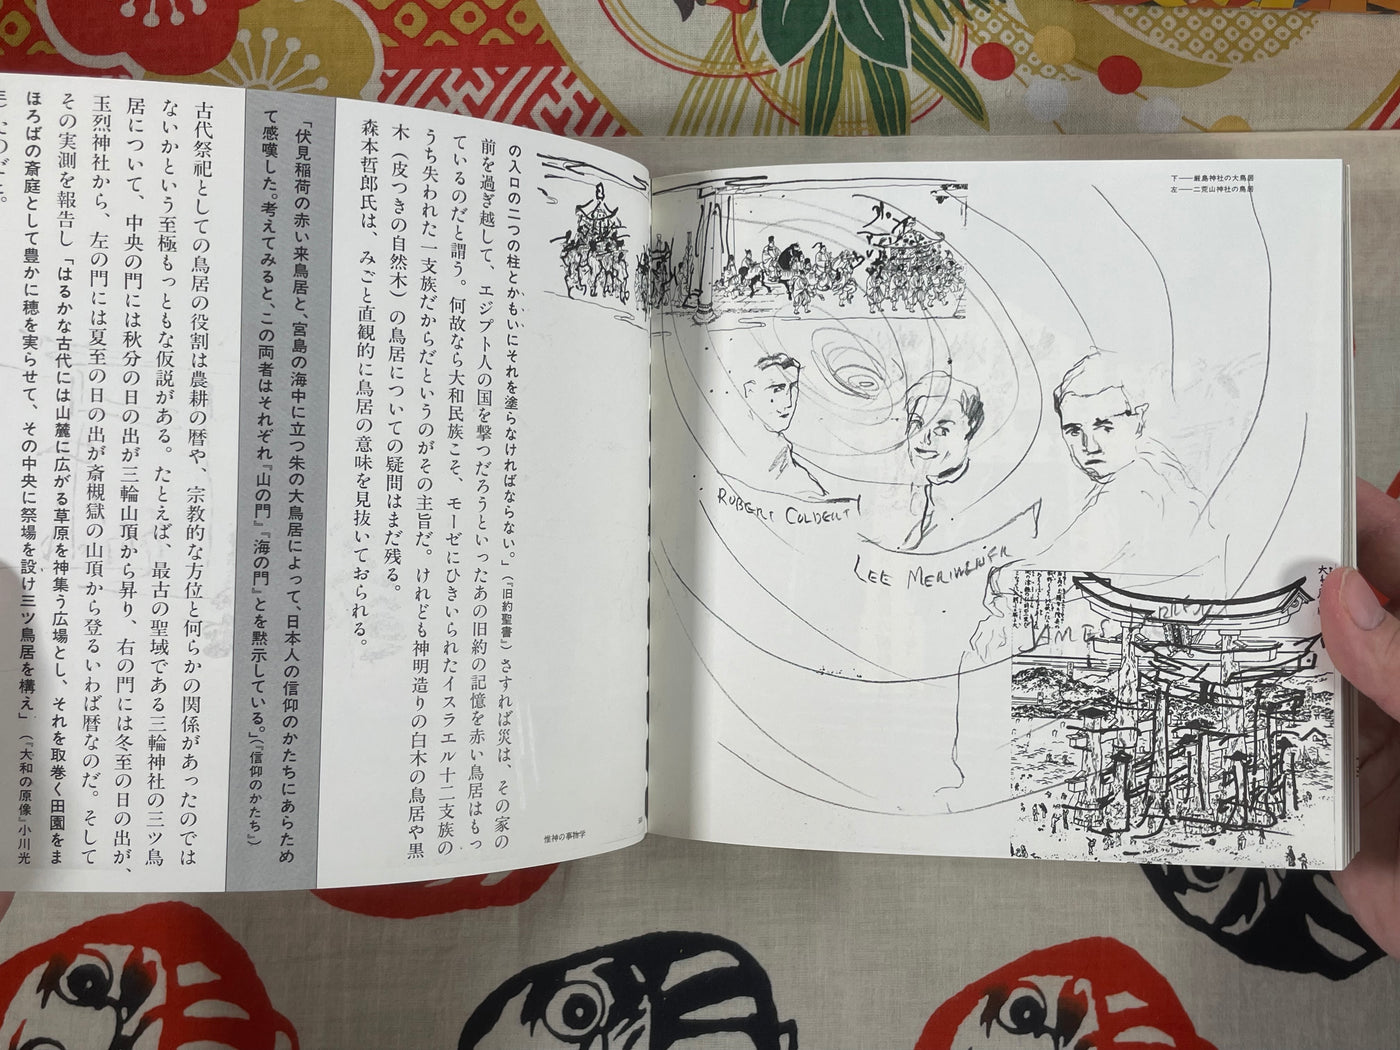 の入口の二つの柱とかもいにそれを塗らなければならない。」（『旧約聖書』）さすれば災は、その家の
前を過ぎ越して、エジプト人の国を撃つだろうといったあの旧約の記憶を赤い鳥居はもっ
ているのだと謂う。何故なら大和民族こそ、モーゼにひきいられたイスラエル十二支族の
うち失われた一支族だからだというのがその主旨だ。けれども神明造りの白木の鳥居や黒
木（皮つきの自然木）の鳥居についての疑問はまだ残る。
森本哲郎氏は、みごと直観的に鳥居の意味を見抜いておられる。
「伏見稲荷の赤い来鳥居と、宮島の海中に立つ朱の大鳥居によって、日本人の信仰のかたちにあらため
て感嘆した。考えてみると、この両者はそれぞれ『山の門』『海の門』とを黙示している。」（『信仰のかたち』）
古代祭祀としての鳥居の役割は農耕の暦や、宗教的な方位と何らかの関係があったのでは
ないかという至極もっともな仮説がある。たとえば、最古の聖域である三輪神社の三ツ鳥
居について、中央の門には秋分の日の出が三輪山頂から昇り、右の門には冬至の日の出が、
玉烈神社から、左の門には夏至の日の出が斎槻獄の山頂から登るいわば暦なのだ。そして
その実測を報告し「はるかな古代には山麓に広がる草原を神集う広場とし、それを取巻く田園をま
ほろばの斎庭として豊かに穂を実らせて、その中央に祭場を設け三ツ鳥居を構え」（『大和の原像』小川光
惟神の事物学
下──厳島神社の大鳥居
左──二荒山神社の鳥居
ROBERT COLBERT
LEE MERIWETHER
JAMES